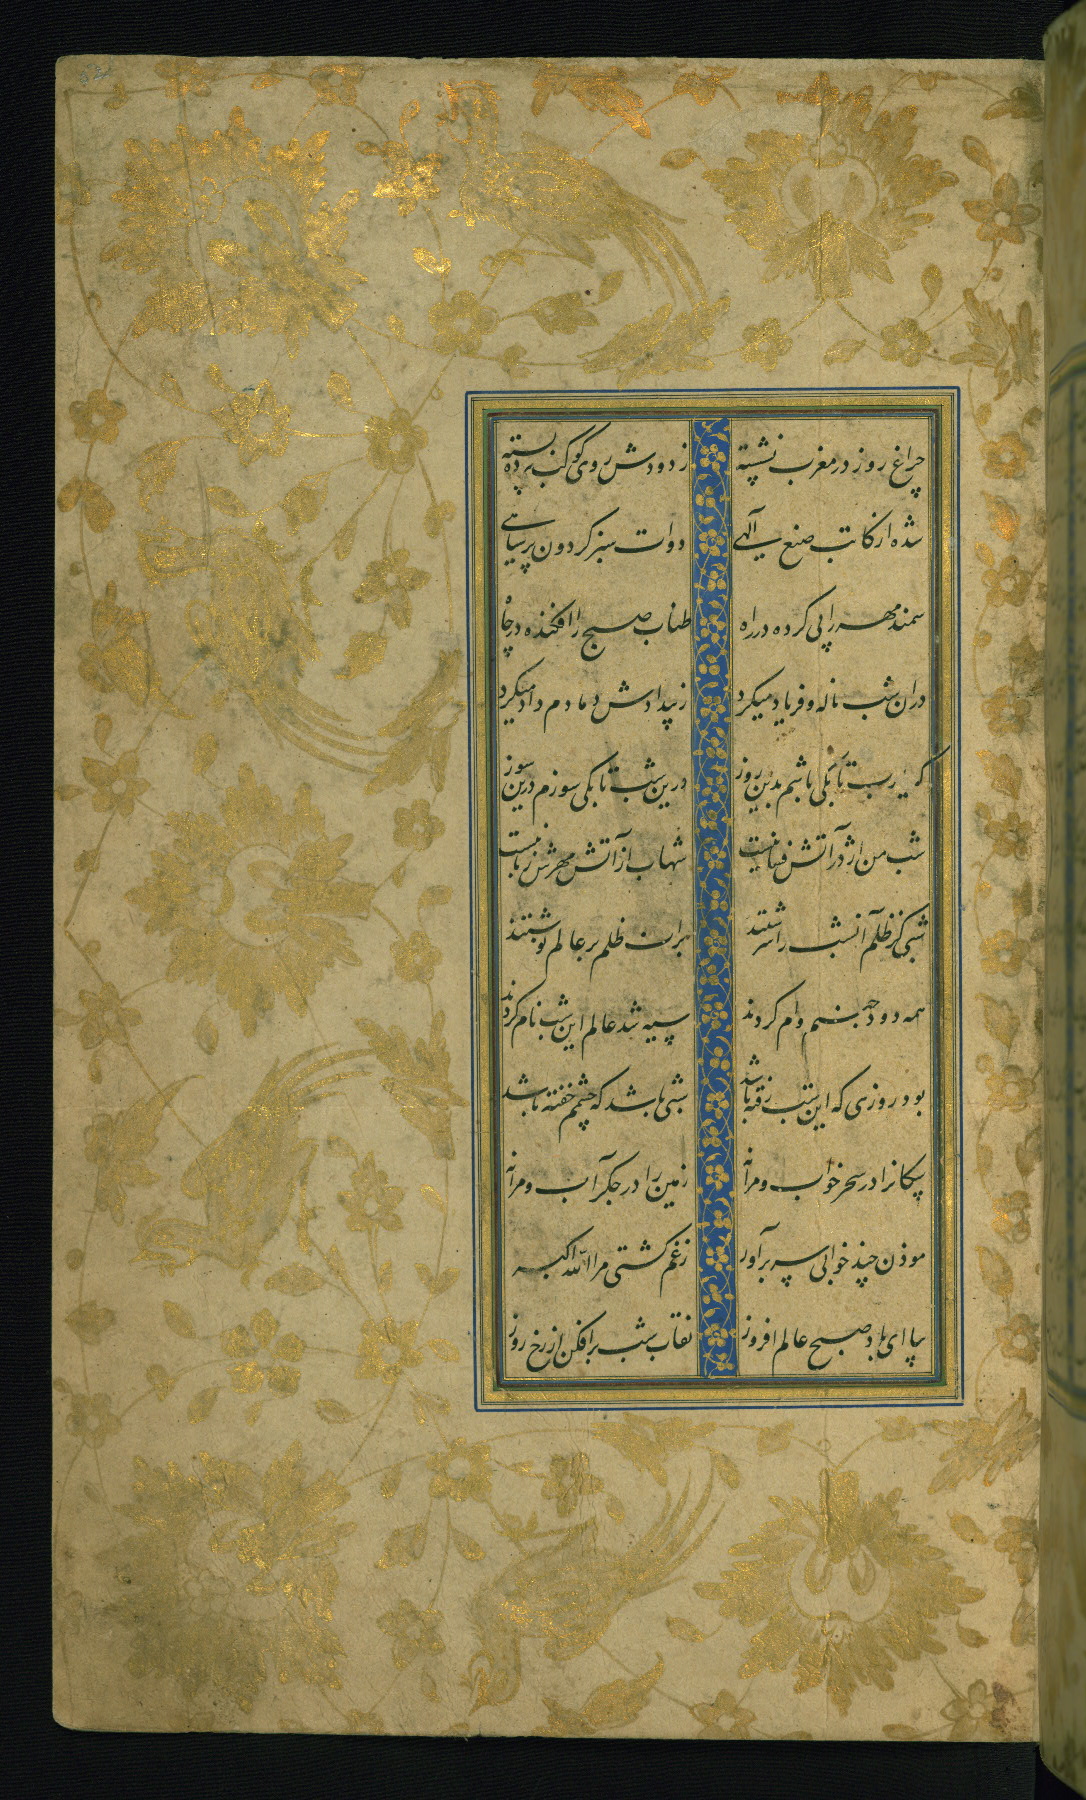 چراغ روز در مغرب نشسته
ز دودش روی کوکب پرده بسته
شده از کاتب صنع الهی
دوات سبز کردون پر سیاهی
سمند مهر را پی کرده در راه
طناب صبح را افکنده در چاه
دران شب ناله و فریاد میکرد
ز بیدادش دمادم داد میکرد
که یا رب تا بکی باشم بدین روز
درین شب تا بکی سوزم درین سوز
شب من اژدر آتش فشانیست
شهاب از آتش مهرش زبانیست
شبی کز ظلم آنشب را سرشتند
برات ظلم بر عالم نوشتند
همه دود جهنم وام کردند
سیه شد عالم این شب نام کردند
بود روزی که این شب رفته باشد
شبی باشد که چشمم خفته باشد
سکانرا در سحر خواب و مرا نه
زمین را در جکر آب و مرا نه
موذن چند خوابی سر برآور
ز غم کشتی مرا الله اکبر
بیا ای باد صبح عالم افروز
نقاب شب برافکن از رخ روز